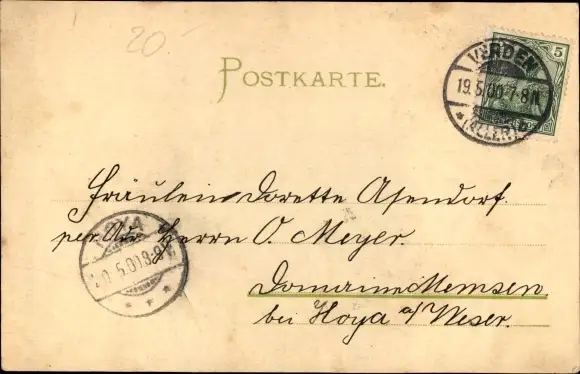 20-
POSTKARTE.
5
VERDEN
19.5.00. 7-8 N.
* (ALLER) *
Fräulein Dorette Asendorf.
per. Adr. Herrn O. Meyer.
Domaine Memsen
bei Hoya a/Weser.
HOYA
20.5.00. 8-9 V.
* * *